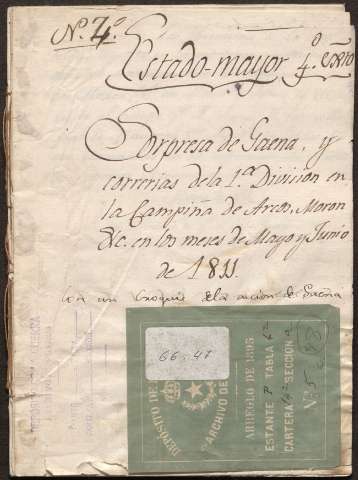 N.º 7.º
Estado-mayor 4.º Exto
Sorpresa de Gaena, y
correrias de la 1.ª Division en
la Campiña de Arcos, Moron
&c. en los meses de Mayo y Junio
de 1811.
con un croquis de la accion de Gaena
66-47
DEPÓSITO DE
ARCHIVO DE
ARREGLO DE 1895
ESTANTE P TABLA 6ª
CARTERA SECCIÓN
Nº 5